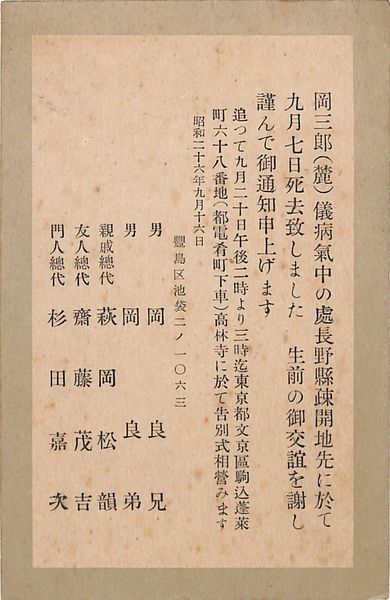 岡三郎(麓)儀病氣中の處長野縣疎開地先に於て
九月七日死去致しました 生前の御交誼を謝し
謹んで御通知申上げます
追つて九月二十日午後二時より三時迄東京都文京區駒込蓬萊
町六十八番地(都電肴町下車)高林寺に於て告別式相營みます
昭和二十六年九月十六日
豐島区池袋二ノ一〇六三
男 岡良兄
男 岡良弟
親戚總代 萩岡松韻
友人總代 齋藤茂吉
門人總代 杉田嘉次